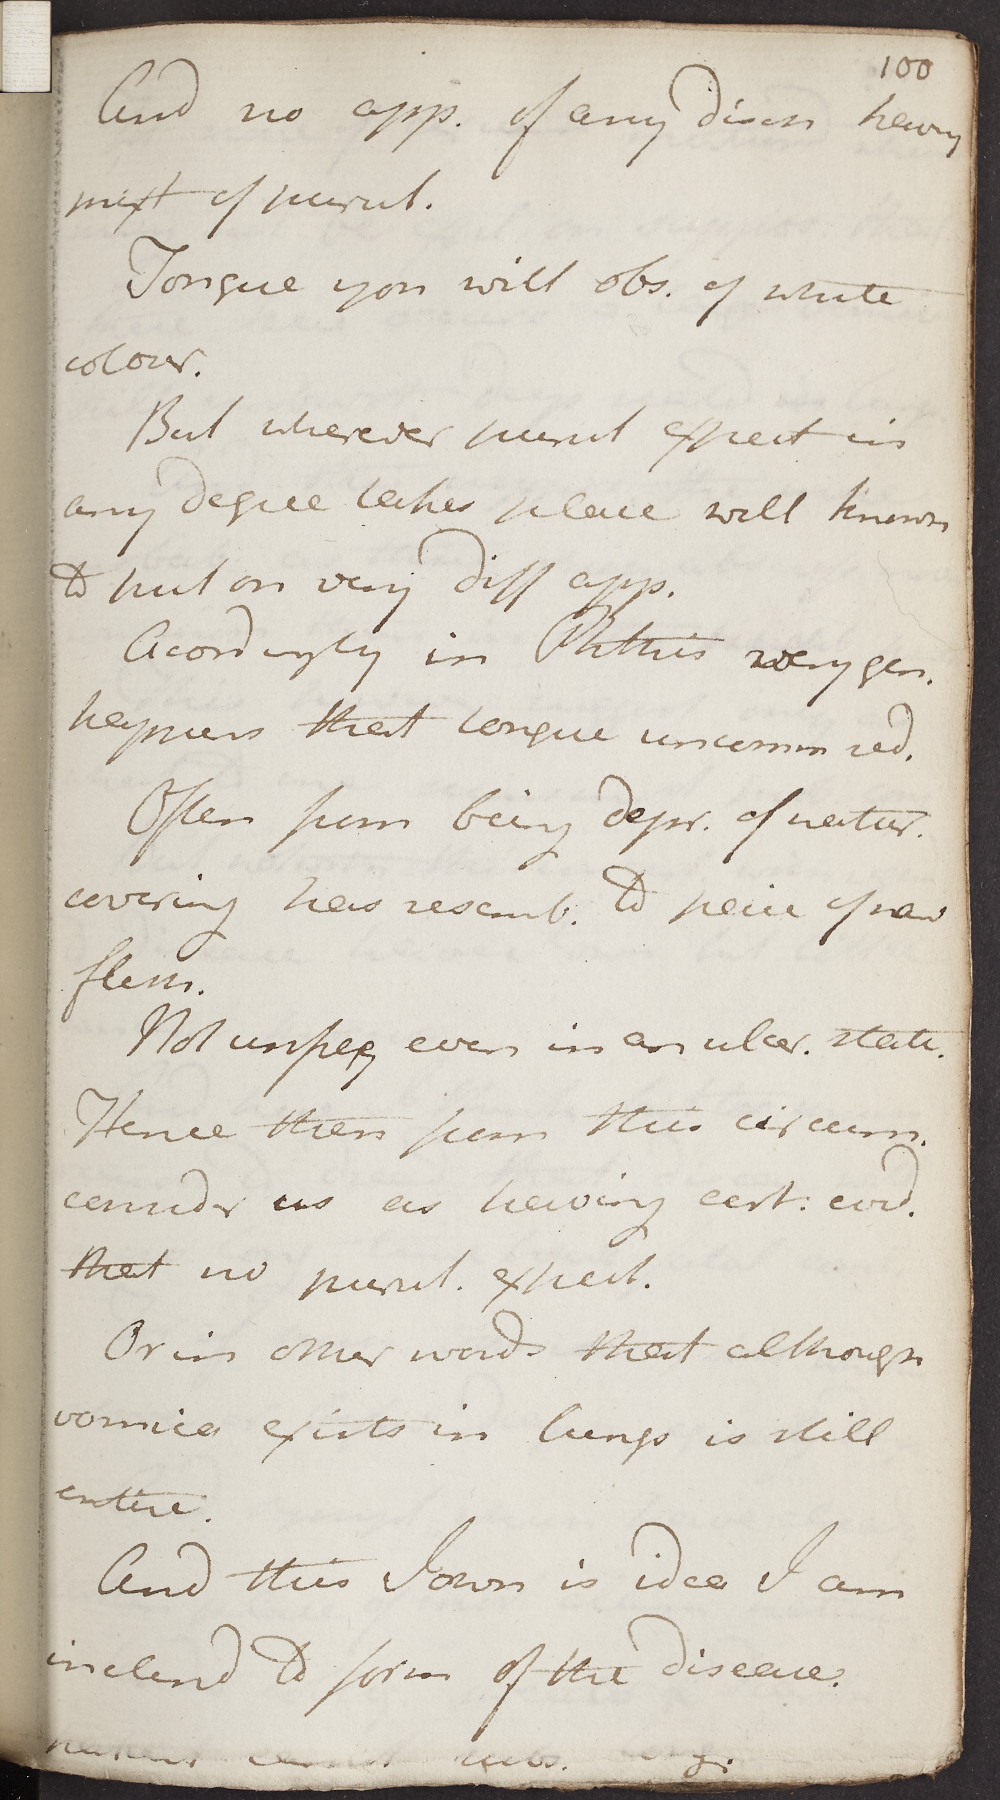 100
And no app. of any disch having
mixt of purul.
Tongue you will obs. of white
colour.
But wherever purul expect in
any degree takes place well known
to put on very diff app.
Acordingly in Phthis very gen.
happens that tongue uncomm red.
Often from being depr. of natur.
covering has resemb. to peice of raw
flesh.
Not unfreq even in an ulcer. state.
Hence then from this circum.
consider us as having cert: evid.
that no purul. expect.
Or in other words that although
vomica exists in lungs is still
entire.
And this I own is idea I am
inclend to form of the disease.